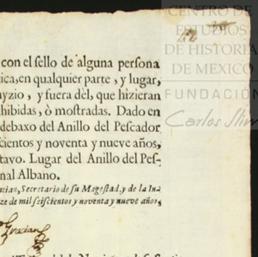 CENTRO DE
ESTUDIOS
DE HISTORIA
DE MEXICO
FUNDACIÓN
Carlos Slim
con el sello de alguna persona
ica, en qualquier parte, y lugar,
uyzio, y fuera dèl, que hizieran
hibidas, ò mostradas. Dado en
debaxo del Anillo del Pescador
scientos y noventa y nueve años,
tavo. Lugar del Anillo del Pes-
nal Albano.
cian, Secretario de su Magestad, y de la In-
ze de mil seiscientos y noventa y nueve años,
Gracian